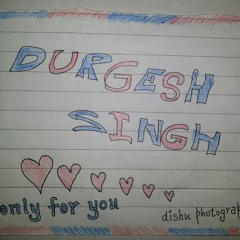 DURGESH
SINGH
only for you
dishu photograp